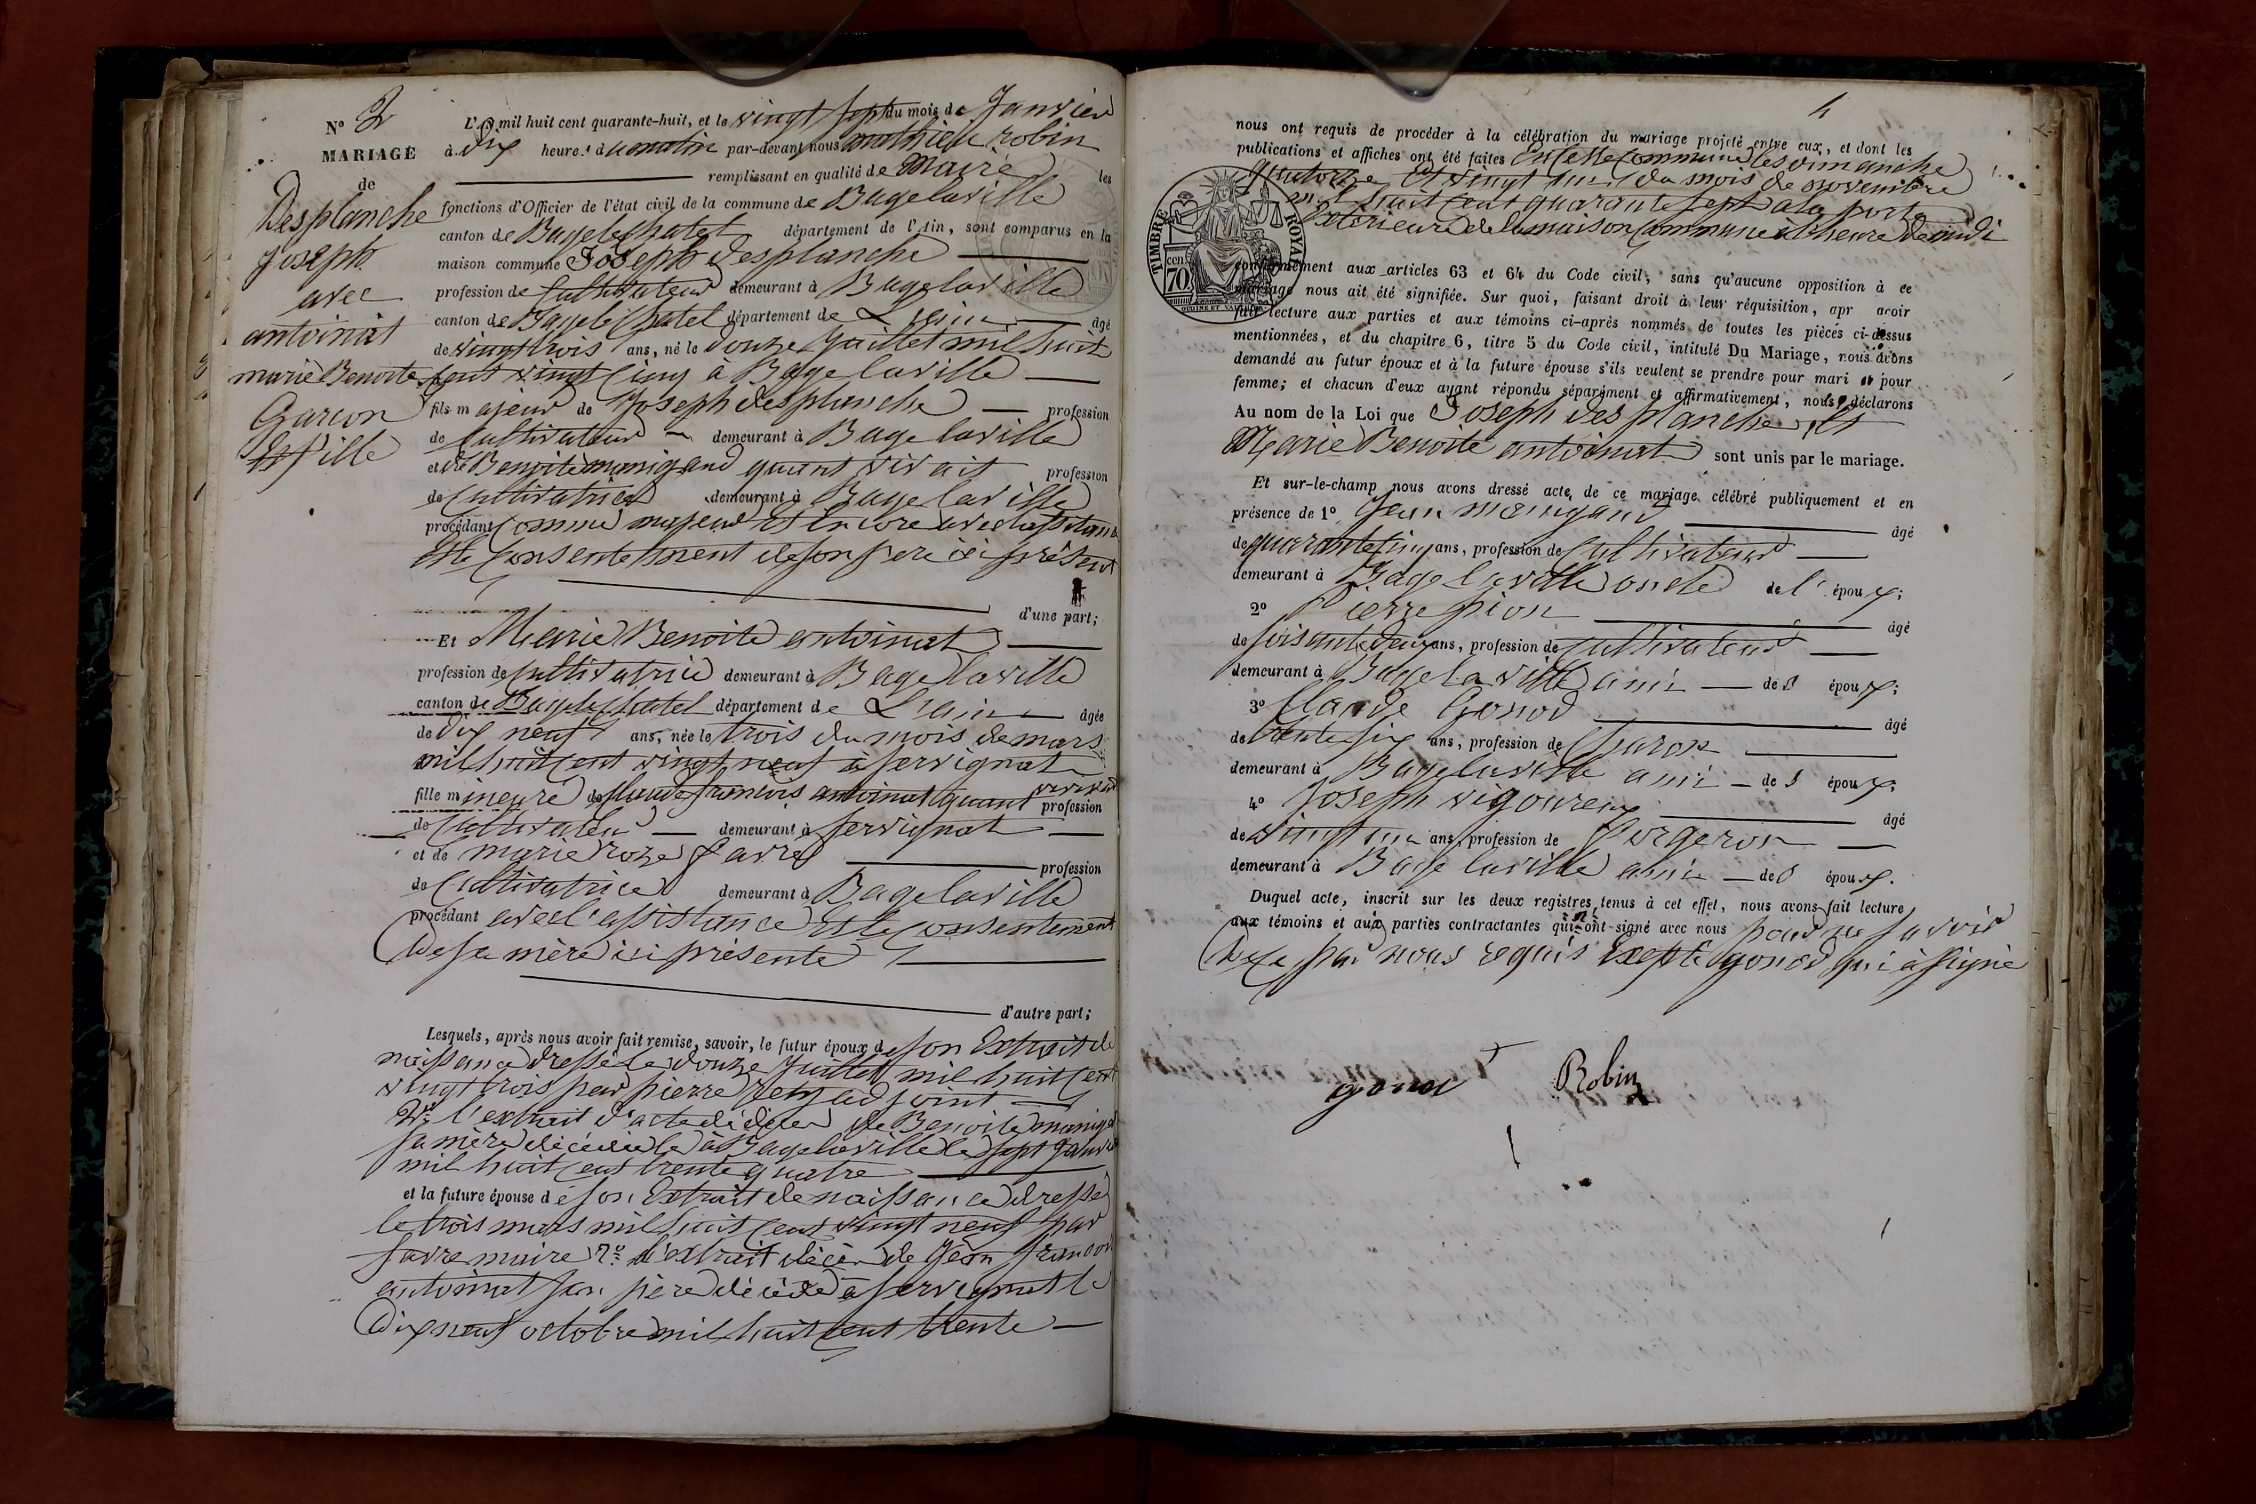 N° 2
MARIAGE
de
Desplanche
Joseph
avec
antoinat
marie Benoite
Garcon
et fille
L'an mil huit cent quarante-huit, et le vingt sept du mois de Janvier
à dix heures du matin par-devant nous mathieu robin
remplissant en qualité de Maire les
fonctions d'Officier de l'état civil de la commune de Bagelaville
canton de Bagelechatel département de l'Ain, sont comparus en la
maison commune Joseph desplanche
profession de Cultivateur demeurant à Bagelaville
canton de Bagelechatel département de L'ain âgé
de vingt trois ans, né le douze Juillet mil huit
cent vingt à Bagelaville
fils majeur de Joseph desplanche profession
de Cultivateur demeurant à Bagelaville
et de Benoite manigand quant vivait profession
de Cultivatrice demeurant à Bagelaville
procédant Comme majeur et encore avec lassistance
et le Consentement de son pere ici présent
d'une part;
Et Marie Benoite antoinat
profession de Cultivatrice demeurant à Bagelaville
canton de Bagelechatel département de L'ain âgée
de dix neuf ans, née le trois du mois de mars
mil huit cent vingt neuf à servignat
fille mineure de francois antoinat quant vivait
profession
de Cultivateur demeurant à servignat
et de marie roze favre profession
de Cultivatrice demeurant à Bagelaville
procédant avec l'assistance et le Consentement
de sa mère ici présente
d'autre part;
Lesquels, après nous avoir fait remise, savoir, le futur époux de son Extrait de
naissance dressé le douze Juillet mil huit cent
vingt trois par pierre adjoint
2° l'extrait d'acte de décès de Benoite manigand
sa mère décédée à Bagelaville le sept Janvier
mil huit cent trente quatre
et la future épouse de son Extrait de naissance dressé
le trois mars mil huit cent vingt neuf par
favre maire 2° l'extrait décès de Jean francois
antoinat son père décédé à servignat le
Dix neuf octobre mil huit cent trente
4
nous ont requis de procéder à la célébration du mariage projeté entre eux, et dont les
publications et affiches ont été faites En cette Commune les dimanche
quatorze et vingt un du mois de novembre
mil huit cent quarante sept a la porte
Exterieure de la maison Commune à l'heure de midi
TIMBRE ROYAL
cen. 70
conformément aux articles 63 et 64 du Code civil, sans qu'aucune opposition à ce
mariage nous ait été signifiée. Sur quoi, faisant droit à leur réquisition, apr avoir
fait lecture aux parties et aux témoins ci-après nommés de toutes les pièces ci-dessus
mentionnées, et du chapitre 6, titre 5 du Code civil, intitulé Du Mariage, nous avons
demandé au futur époux et à la future épouse s'ils veulent se prendre pour mari et pour
femme; et chacun d'eux ayant répondu séparément et affirmativement, nous déclarons
Au nom de la Loi que Joseph desplanche Et
Marie Benoite antoinat sont unis par le mariage.
Et sur-le-champ nous avons dressé acte de ce mariage célébré publiquement et en
présence de 1° Jean manigand âgé
de quarante cinq ans, profession de Cultivateur
demeurant à Bagelaville oncle de l'époux;
2° Pierre pion âgé
de soisante deux ans, profession de Cultivateur
demeurant à Bagelaville ami de l époux;
3° Claude Gonod âgé
de trente six ans, profession de Charon
demeurant à Bagelaville ami de l époux;
4° Joseph vigoureux âgé
de vingt un ans, profession de forgeron
demeurant à Bagelaville ami de l époux.
Duquel acte, inscrit sur les deux registres tenus à cet effet, nous avons fait lecture
aux témoins et aux parties contractantes qui n'ont signé avec nous pour ne savoir
De ce par nous requis Exepté gonod qui à signé
gonod Robin